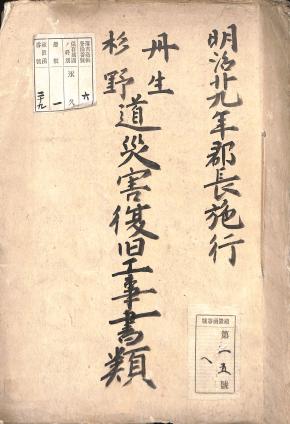 明治廿九年郡長施行
丹生
杉野
道災害復旧工事書類
永久
六
一
第二五號
へ